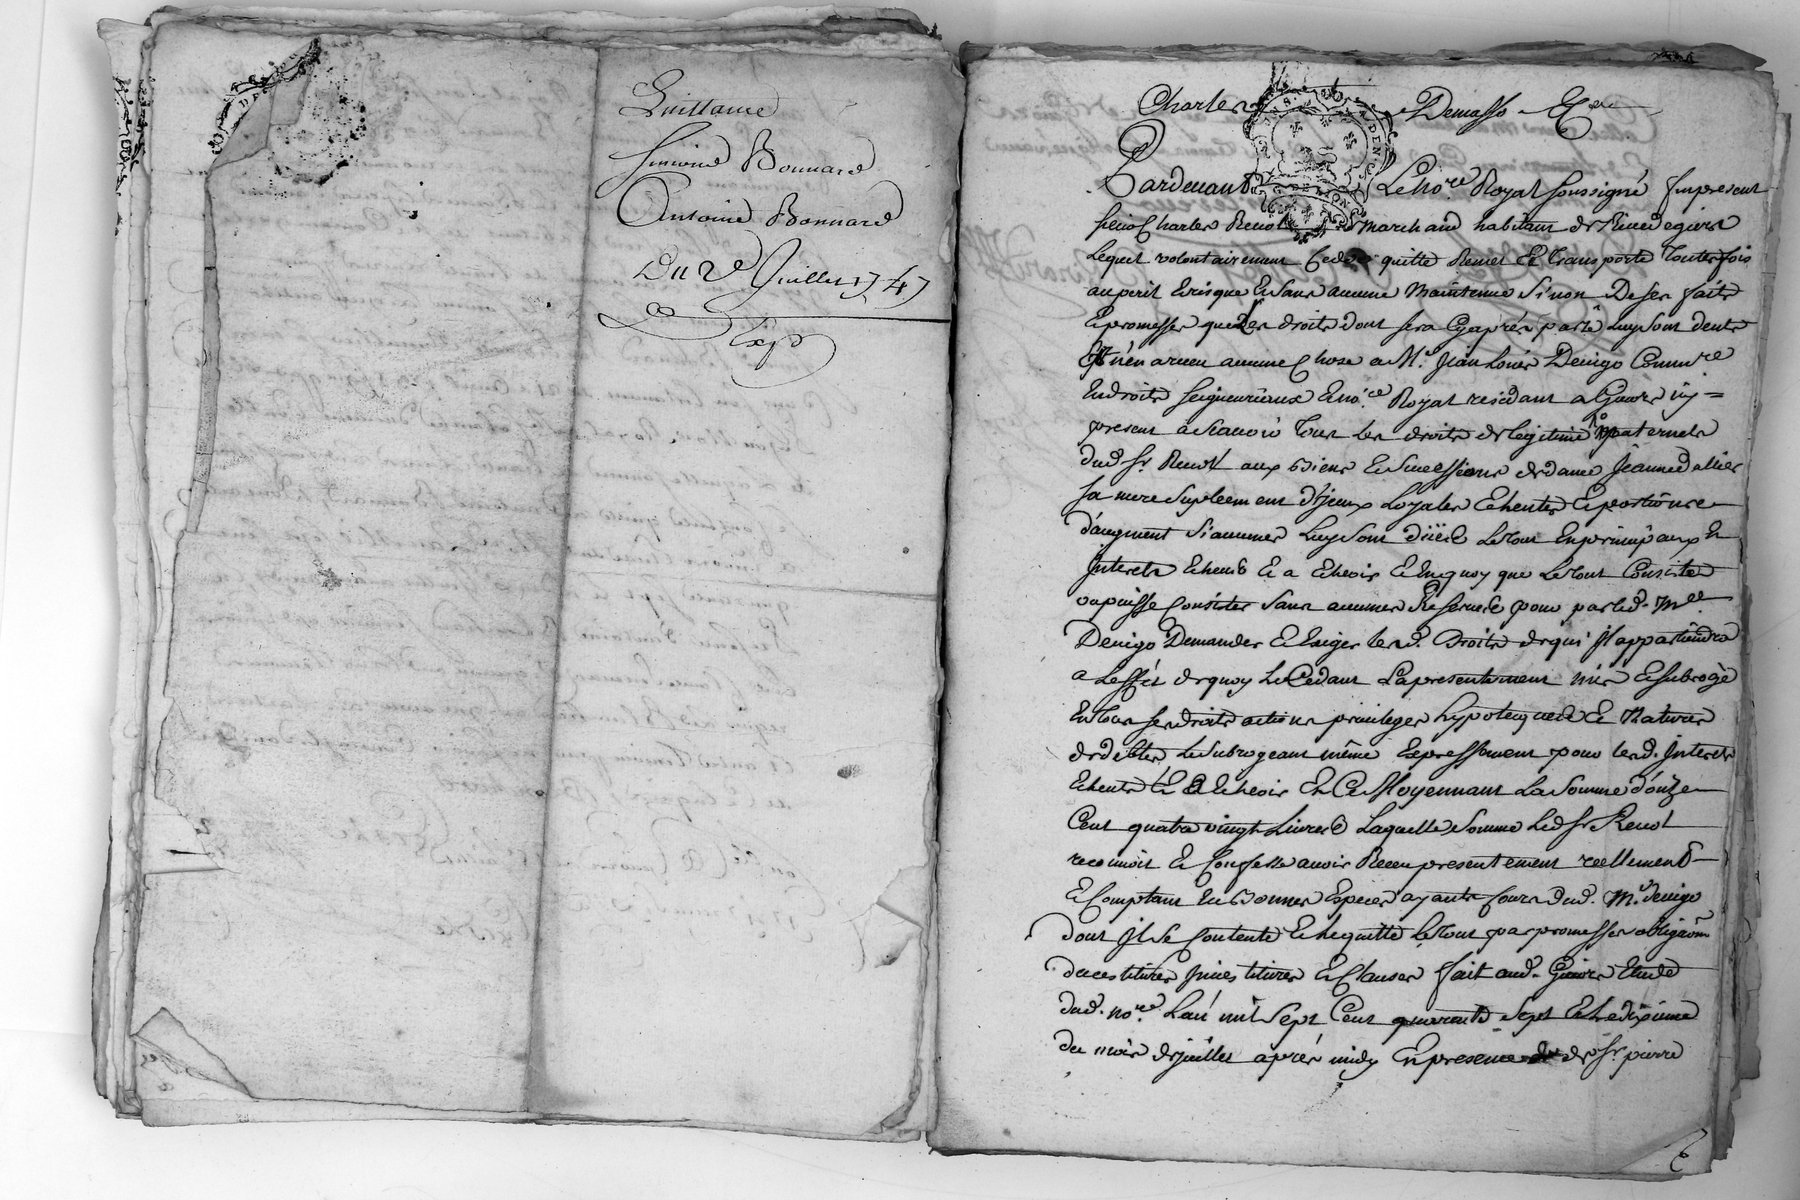 Quittance
Bonnard
Antoine Bonnard
Du 2e Juillet 1747
Exp
Charles Demasso Etc
Pardevant Le no.re Royal soussigné fut present
sieur Charles Renot marchand habitant de Rivedegiers
Lequel volontairement Cede quitte Remet Et transporte touttefois
au peril Et risque Et sans aucune Maintenue sinon De ses faits
Et promesses que les droits dont sera Cyaprés parlé luy sont deubs
n'en a receu aucune Chose a M.e Jean Louis Denigo Comm.re
En droits seigneuriaux Et no.re Royal residant a Givors icy =
present a scavoir tous les droits de legitime Maternels
dud. Sr. Renot aux Biens Et successions de dame Jeanne dallier
sa mere supleement d'yceux Loyales Echeutes Et portion
d'augment si aucunes Luy sont düeës Le tout En principaux Et
Interets Echeus Et a Echeoir Et En quoy que Le tout Consiste
ou puisse Consister sans aucunes Reserves pour par led. M.e
Denigo Demander Et Exiger lesd. Droits de qui Il appartiendra
a Leffét de quoy Le Cedant La presentement mis Et subrogé
En tous ses droits actions privileges hypoteques Et Natures
de debtes Le subrogeant même Expressement pour lesd. Interets
Echeuts Et a Echeoir Et Ce Moyennant La somme d'onze
Cent quatre vingt Livres Laquelle somme Led Sr Renot
reconnoit Et Confesse avoir Receu presentement reellement
Et Comptant En Bonnes Especes ayants Cours dud. M.e denigo
dont Il se Contente Et L'equitte Le tout par promesses obligãons
Investitures Et Clauses fait aud. Givors Etude
dud. no.re L'an mil sept Cent quarante sept Et Le dixieme
du mois de juillet aprés midy En presence de Sr. pierre